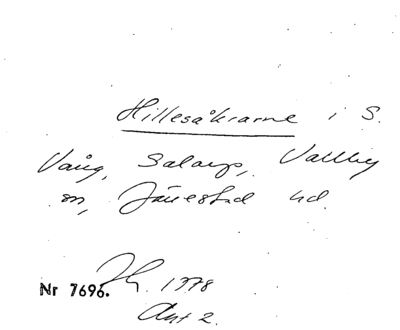 Hillesåkrarne i S.
Vång, Salarp, Vallby
sn, Järrestad hd.
1978
Nr 7696.
Avt 2.